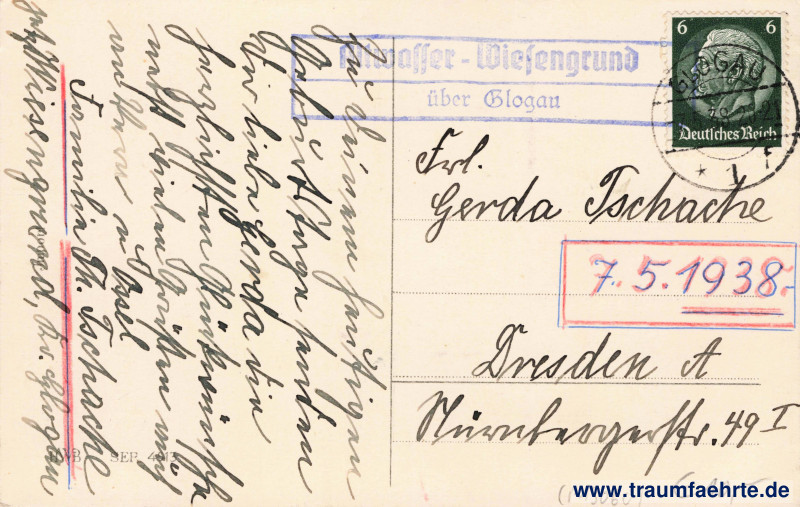 Zu Deinem heutigen
Geburtstage senden
Wir liebe Gerda die
herzlichsten Glückwünsche
nebst vielen Grüßen auch
an
Familie Th. Tschache
jetzt Wiesengrund, Kr. Glogau
Altwasser - Wiesengrund
über Glogau
6 6
Deutsches Reich
GLOGAU
* 1 f
Frl.
Gerda Tschache
7.5.1938.
Dresden A
Nürnbergerstr. 49 I
SEF
www.traumfaehrte.de